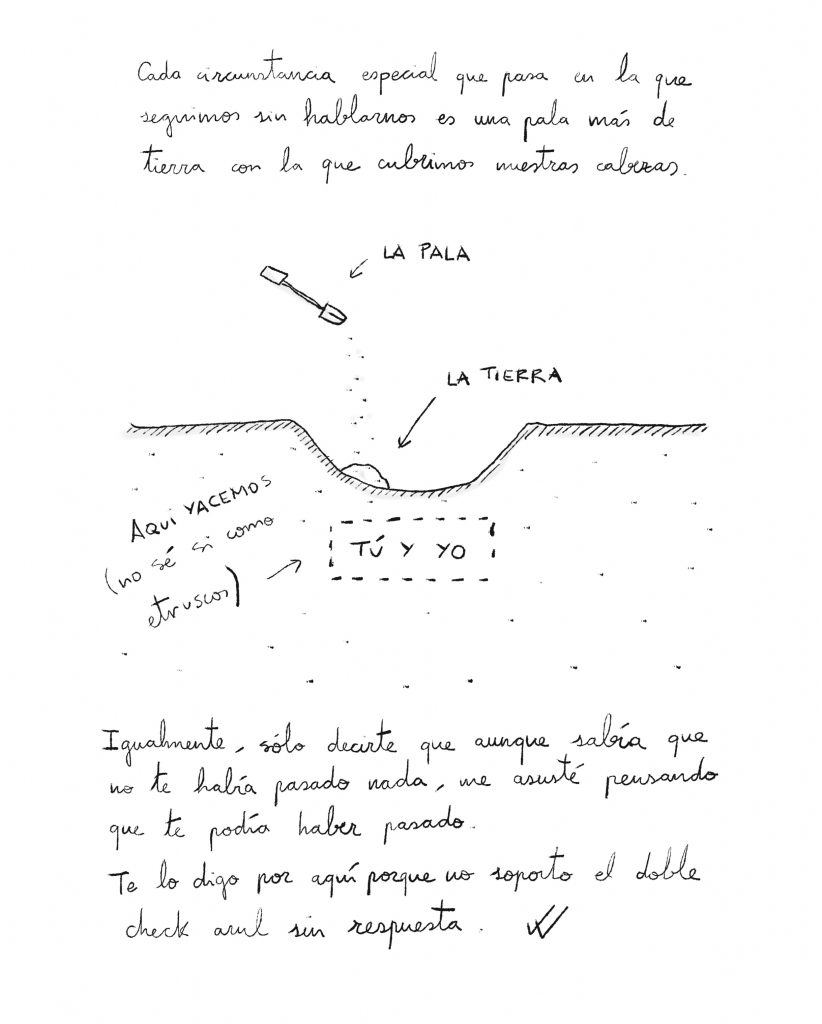 Cada circunstancia especial que pasa en la que
seguimos sin hablarnos es una pala más de
tierra con la que cubrimos nuestras cabezas.
LA PALA
LA TIERRA
AQUÍ YACEMOS
(no sé si como
etruscos)
TÚ Y YO
Igualmente, sólo decirte que aunque sabía que
no te había pasado nada, me asusté pensando
que te podía haber pasado.
Te lo digo por aquí porque no soporto el doble
check azul sin respuesta.